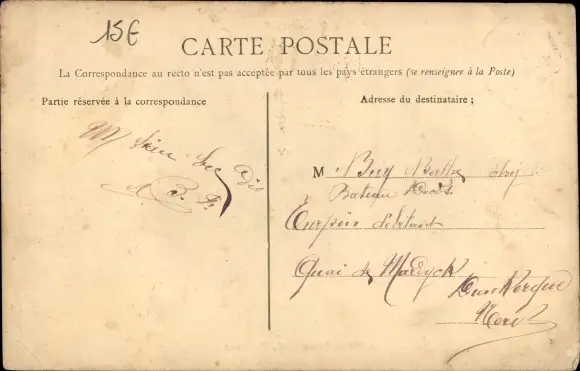 15€
CARTE POSTALE
La Correspondance au recto n'est pas acceptée par tous les pays étrangers (se renseigner à la Poste)
Partie réservée à la correspondance
Adresse du destinataire ;
B. F.
M Berthe
Bateau
débitant
Quai de Mardyck
Dunkerque
Nord